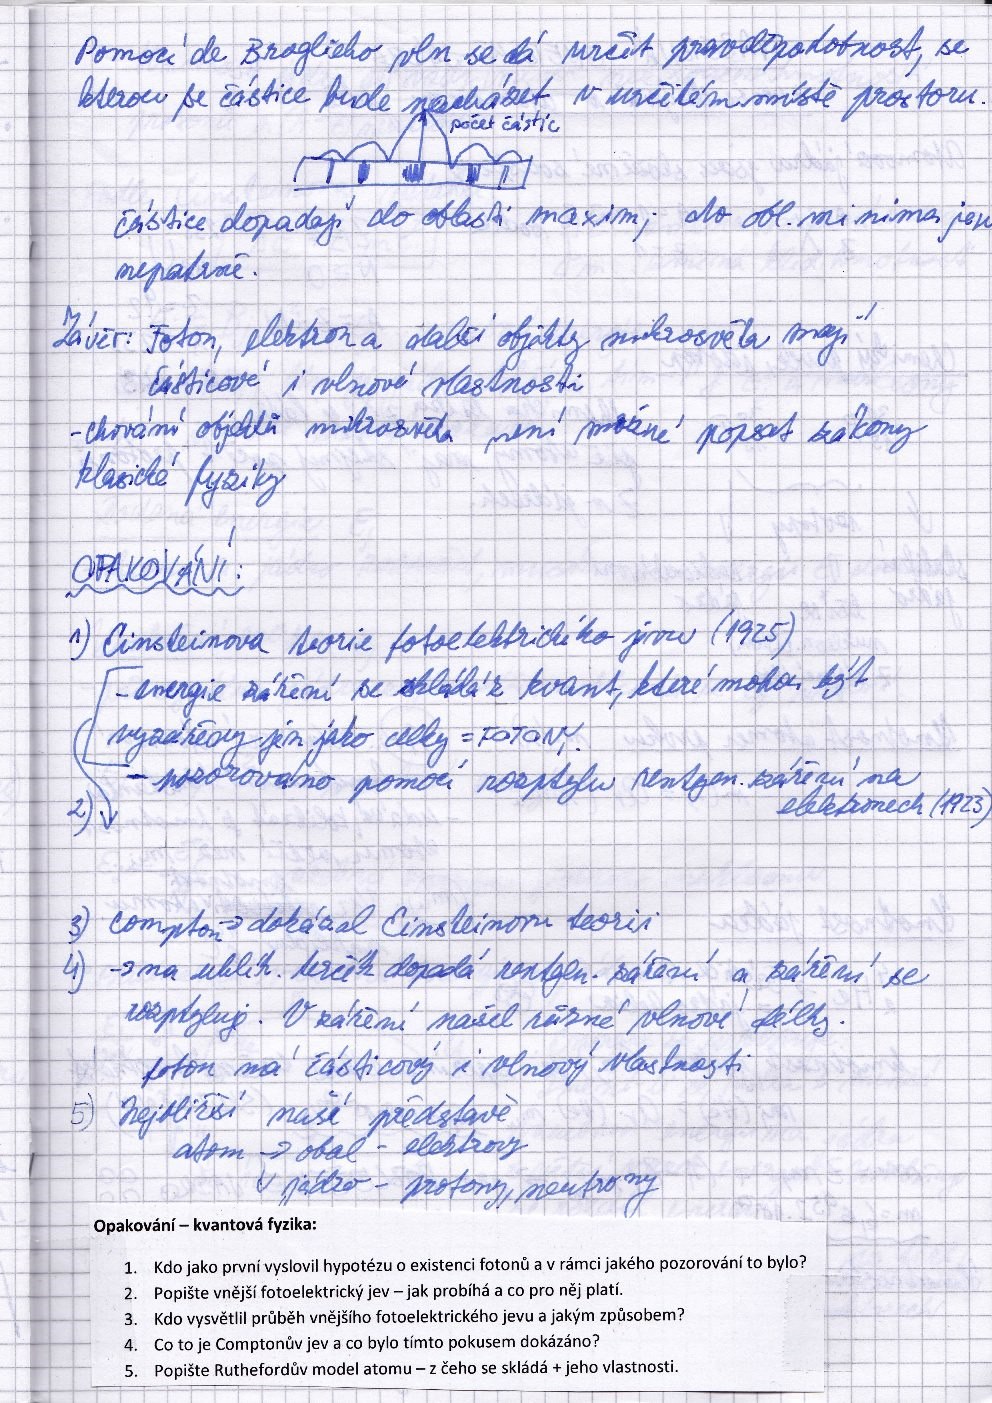 Pomocí de Broglieho vln se dá určit pravděpodobnost, se
kterou se částice bude nacházet v určitém místě prostoru.
počet částic
částice dopadají do oblasti maxim; do obl. minima jen
nepatrně.
Závěr: Foton, elektron a další objekty mikrosvěta mají
částicové i vlnové vlastnosti
- chování objektů mikrosvěta není možné popsat zákony
klasické fyziky
OPAKOVÁNÍ:
1) Einsteinova teorie fotoelektrického jevu (1925)
- energie záření se skládá z kvant, které mohou být
vyzářeny jen jako celky = FOTONY
- pozorováno pomocí rozptylu rentgen. záření na
elektronech (1923)
2)
3) Compton → dokázal Einsteinovu teorii
4) → na uhlík. terčík dopadá rentgen. záření a záření se
rozptyluje. V záření našel různé vlnové délky.
foton má částicový i vlnový vlastnosti
5) Nejbližší naší představě
atom → obal - elektrony
↓ jádro - protony, neutrony
Opakování – kvantová fyzika:
1. Kdo jako první vyslovil hypotézu o existenci fotonů a v rámci jakého pozorování to bylo?
2. Popište vnější fotoelektrický jev – jak probíhá a co pro něj platí.
3. Kdo vysvětlil průběh vnějšího fotoelektrického jevu a jakým způsobem?
4. Co to je Comptonův jev a co bylo tímto pokusem dokázáno?
5. Popište Ruthefordův model atomu – z čeho se skládá + jeho vlastnosti.